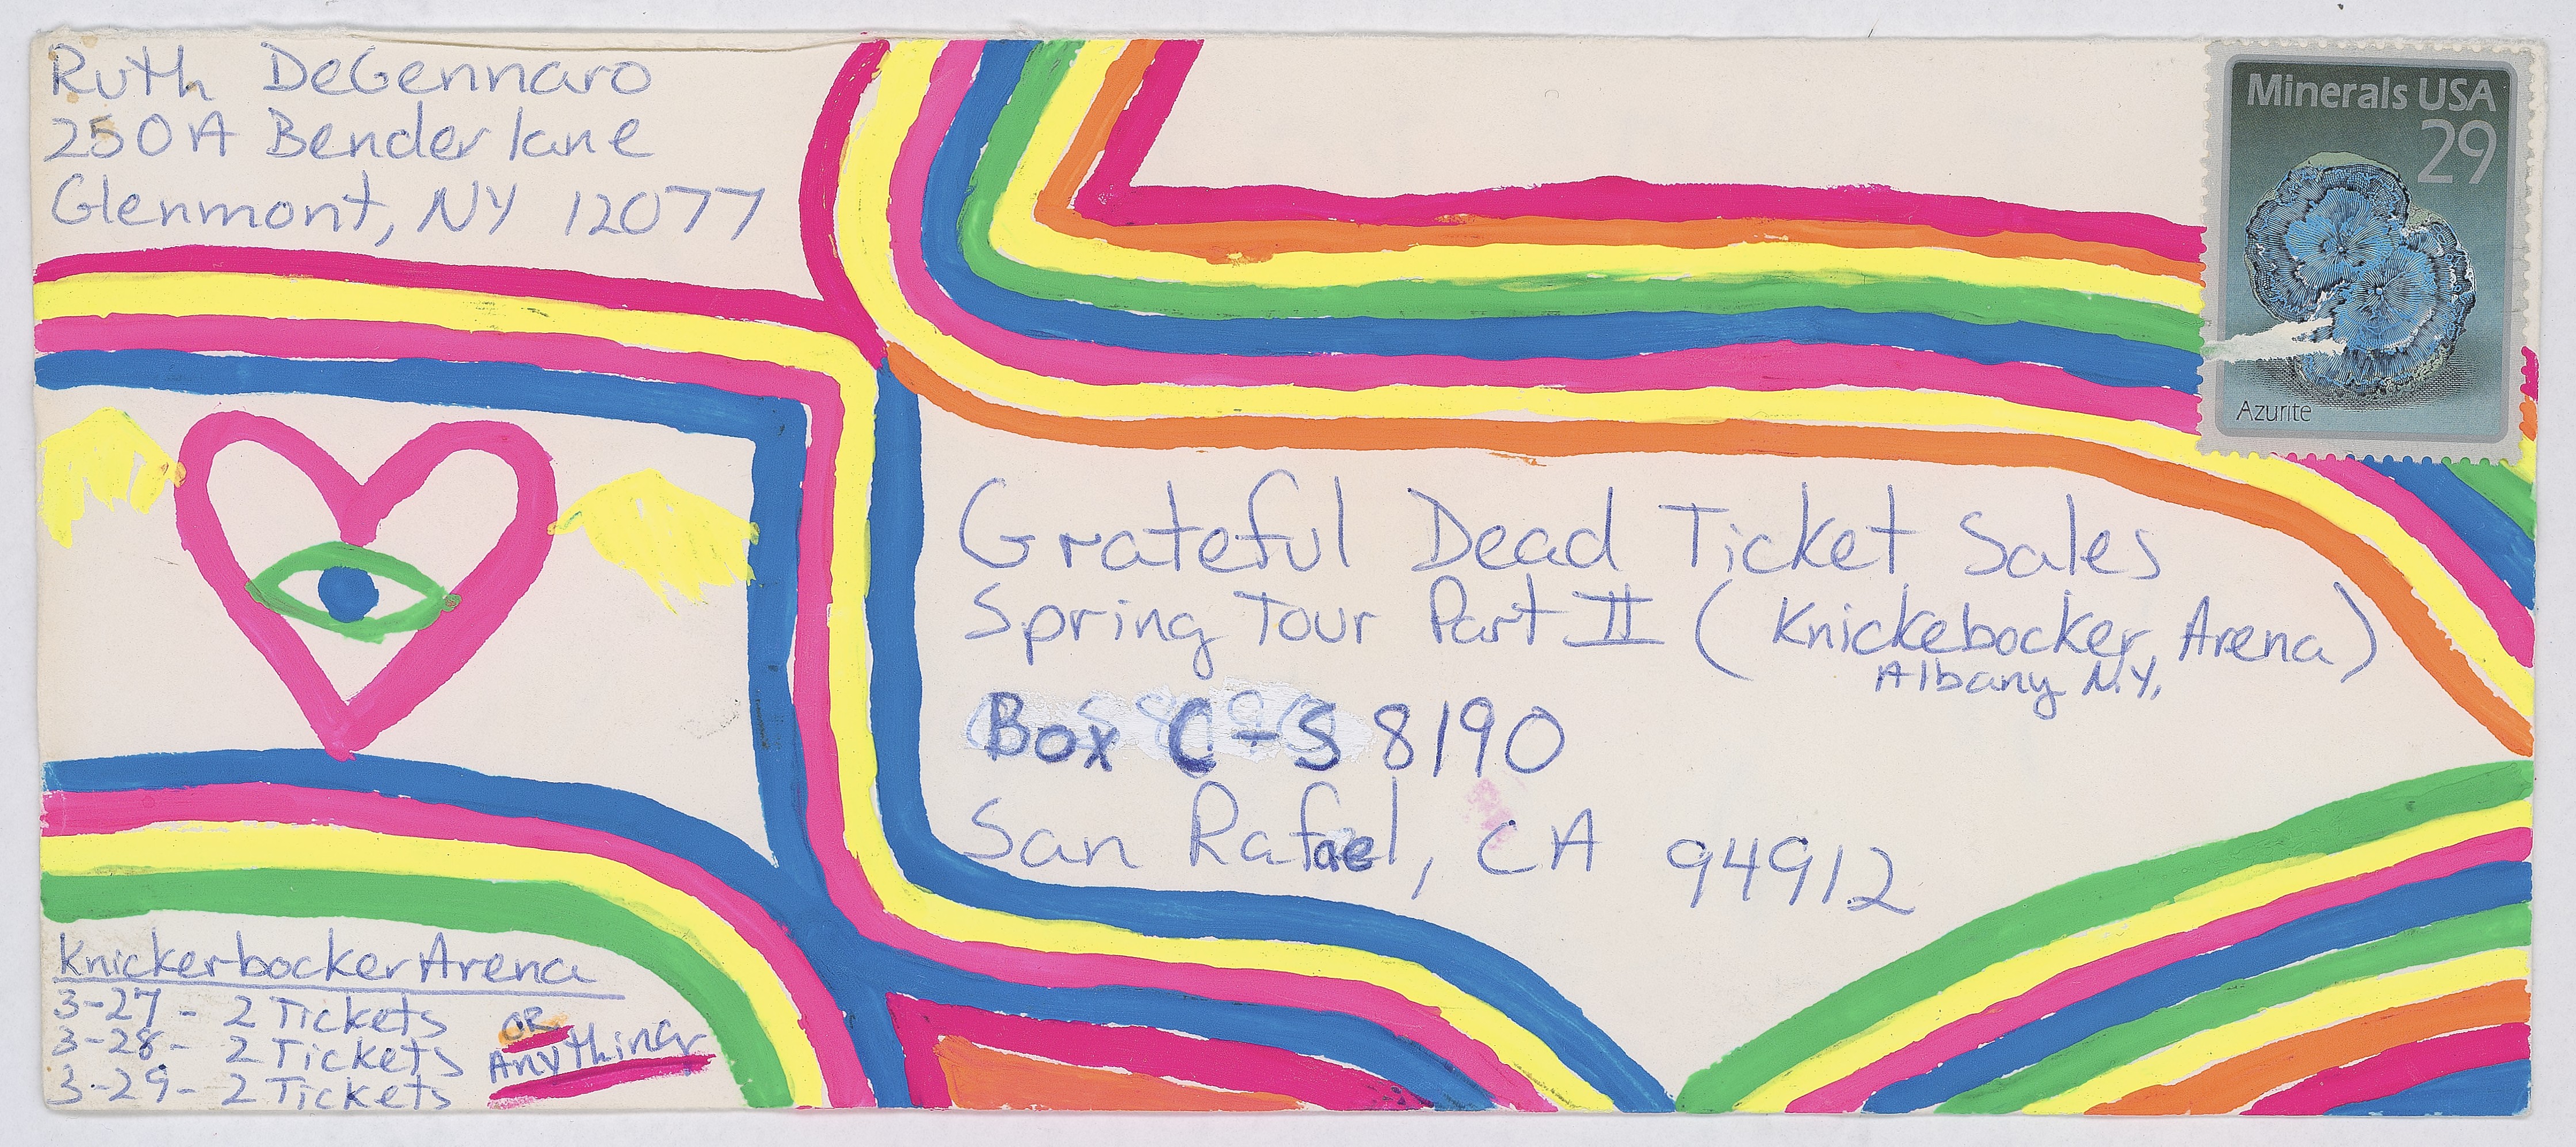 Ruth DeGennaro
250A Bender lane
Glenmont, NY 12077
Minerals USA
29
Azurite
Grateful Dead Ticket Sales
Spring Tour Part II (Knickebocker Arena)
Albany N.Y.
Box C-S 8190
San Rafael, CA 94912
Knickerbocker Arena
3-27 - 2 Tickets
3-28 - 2 Tickets
3-29 - 2 Tickets
OR
Anything